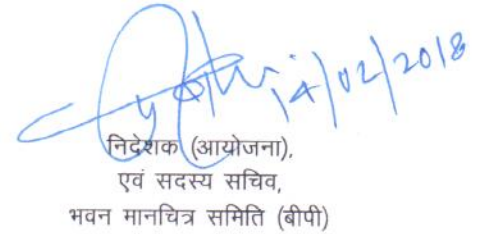 14/02/2018
निदेशक (आयोजना),
एवं सदस्य सचिव,
भवन मानचित्र समिति (बीपी)